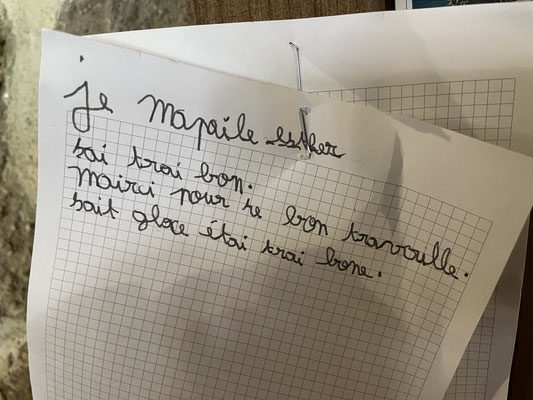 je mapaile esther
sai trai bon.
mairci pour se bon travoulle.
sait glace étai trai bone.